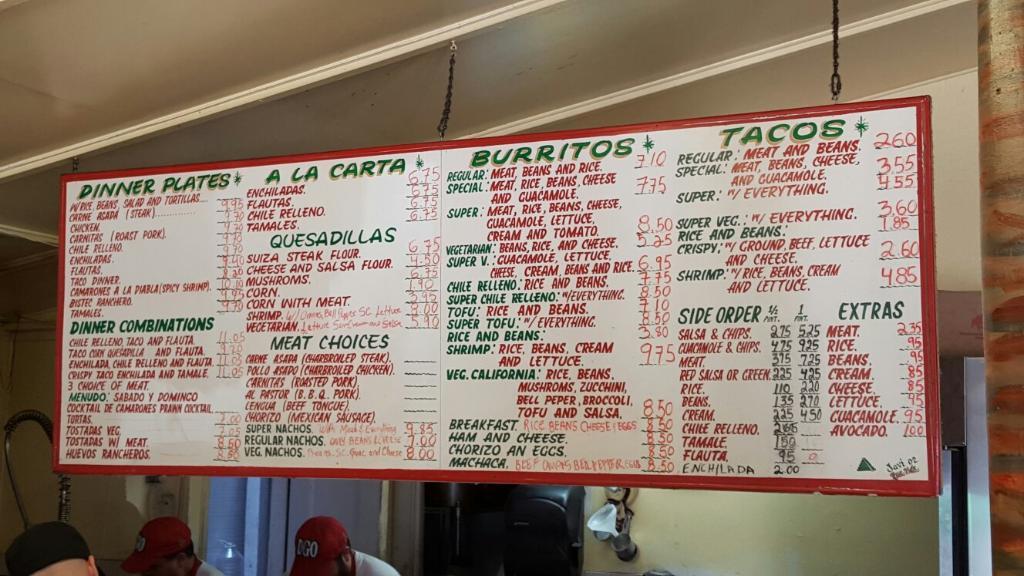 DINNER PLATES
W/RICE, BEANS, SALAD AND TORTILLAS
CARNE ASADA (STEAK)
CHICKEN.
CARNITAS (ROAST PORK).
CHILE RELLENO.
ENCHILADAS.
FLAUTAS.
TACO DINNER.
CAMARONES A LA DIABLA (SPICY SHRIMP).
BISTEC RANCHERO.
TAMALES.
DINNER COMBINATIONS
CHILE RELLENO, TACO AND FLAUTA.
TACO CORN QUESADILLA AND FLAUTA.
ENCHILADA, CHILE RELLENO AND FLAUTA.
CRISPY TACO ENCHILADA AND TAMALE.
3 CHOICE OF MEAT.
MENUDO: SABADO Y DOMINGO
COCKTAIL DE CAMARONES PRAWN COCKTAIL
TORTAS.
TOSTADAS VEG.
TOSTADAS W/ MEAT.
HUEVOS RANCHEROS.
A LA CARTA
ENCHILADAS. 6.75
FLAUTAS.
CHILE RELLENO. 6.75
TAMALES. 6.75
QUESADILLAS
SUIZA STEAK FLOUR. 6.75
CHEESE AND SALSA FLOUR. 4.50
MUSHROOMS. 6.75
CORN. 1.90
CORN WITH MEAT. 3.95
SHRIMP. 8.00
VEGETARIAN. 5.90
MEAT CHOICES
CARNE ASADA (CHARBROILED STEAK).
POLLO ASADO (CHARBROILED CHICKEN).
CARNITAS (ROASTED PORK).
AL PASTOR (B.B.Q. PORK).
LENGUA (BEEF TONGUE).
CHORIZO (MEXICAN SAUSAGE).
SUPER NACHOS. With Meat & Everything 9.85
REGULAR NACHOS. ONLY BEANS & CHEESE 7.00
VEG. NACHOS. Beans, SC, Guac, and Cheese 8.00
BURRITOS
REGULAR: MEAT, BEANS AND RICE. 7.10
SPECIAL: MEAT, RICE, BEANS, CHEESE
AND GUACAMOLE. 7.75
SUPER: MEAT, RICE, BEANS, CHEESE,
GUACAMOLE, LETTUCE,
CREAM AND TOMATO. 8.50
VEGETARIAN: BEANS, RICE, AND CHEESE. 5.25
SUPER V.: GUACAMOLE, LETTUCE,
CHEESE, CREAM, BEANS AND RICE. 6.95
CHILE RELLENO: RICE AND BEANS. 7.75
SUPER CHILE RELLENO: W/EVERYTHING. 8.50
TOFU: RICE AND BEANS. 7.10
SUPER TOFU: W/ EVERYTHING. 8.50
RICE AND BEANS:
SHRIMP: RICE, BEANS, CREAM
AND LETTUCE. 9.75
VEG. CALIFORNIA: RICE, BEANS,
MUSHROMS, ZUCCHINI,
BELL PEPER, BROCCOLI,
TOFU AND SALSA. 8.50
BREAKFAST. RICE BEANS CHEESE & EGGS 8.50
HAM AND CHEESE. 8.50
CHORIZO AN EGGS. 8.50
MACHACA. 8.50
TACOS
REGULAR: MEAT AND BEANS. 2.60
SPECIAL: MEAT, BEANS, CHEESE,
AND GUACAMOLE. 3.55
SUPER: W/ EVERYTHING. 4.55
SUPER VEG.: W/ EVERYTHING. 3.60
RICE AND BEANS: 1.85
CRISPY: W/ GROUND BEEF, LETTUCE
AND CHEESE. 2.60
SHRIMP: W/ RICE, BEANS, CREAM
AND LETTUCE. 4.85
SIDE ORDER ½ PNT. 1 PNT.
SALSA & CHIPS. 2.75 5.25
GUACAMOLE & CHIPS. 4.75 9.25
MEAT. 3.75 7.25
RED SALSA OR GREEN. 2.25 4.25
RICE. 1.10 2.20
BEANS. 1.35 2.70
CREAM. 2.25 4.50
CHILE RELLENO.
TAMALE.
FLAUTA. .95
ENCHILADA 2.00
EXTRAS
MEAT. 2.35
RICE. .95
BEANS. .95
CREAM. .85
CHEESE. .85
LETTUCE. .95
GUACAMOLE. .95
AVOCADO. 1.00